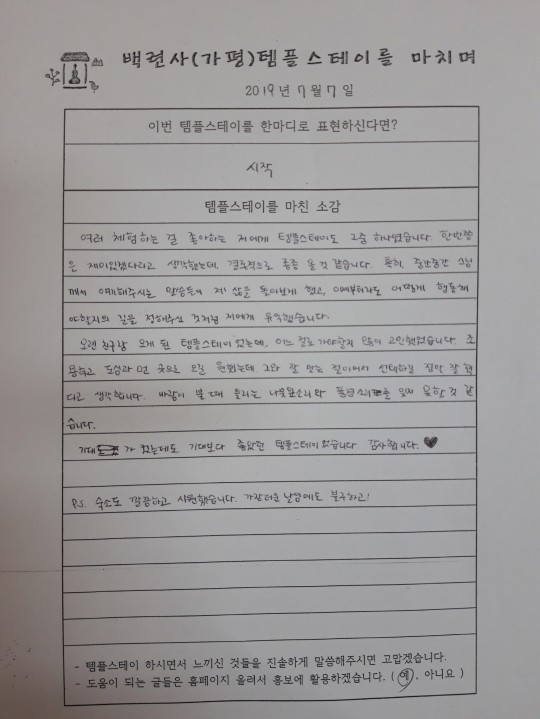 백련사(가평)템플스테이를 마치며
2019년 7월 7일
이번 템플스테이를 한마디로 표현하신다면?
시작
템플스테이를 마친 소감
여러 체험하는 걸 좋아하는 저에게 템플스테이도 그중 하나였습니다. 한번쯤
은 재미있겠다라고 생각했는데, 결론적으로 종종 올 것 같습니다. 특히, 중간중간 스님
께서 얘기해주시는 말씀들이 제 삶을 돌아보게 했고, 이제부터라도 어떻게 행동해
야할지의 길을 정해주신 것처럼 저에게 유익했습니다.
오랜 친구랑 오게 된 템플스테이였는데, 어느 절로 가야할지 고민했었습니다. 조
용하고 도심과 먼 곳으로 오길 원했는데 그와 잘 맞는 절이어서 선택하길 정말 잘 했
다고 생각합니다. 바람이 불 때 들리는 나뭇잎소리와 풍경소리를 잊지 못할 것 같
습니다.
기대가 컸는데도 기대보다 좋았던 템플스테이였습니다. 감사합니다. ♥
P.S. 숙소도 깔끔하고 시원했습니다. 가장더운 날씨에도 불구하고!
- 템플스테이 하시면서 느끼신 것들을 진솔하게 말씀해주시면 고맙겠습니다.
- 도움이 되는 글들은 홈페이지 올려서 홍보에 활용하겠습니다. ( 예, 아니요 )